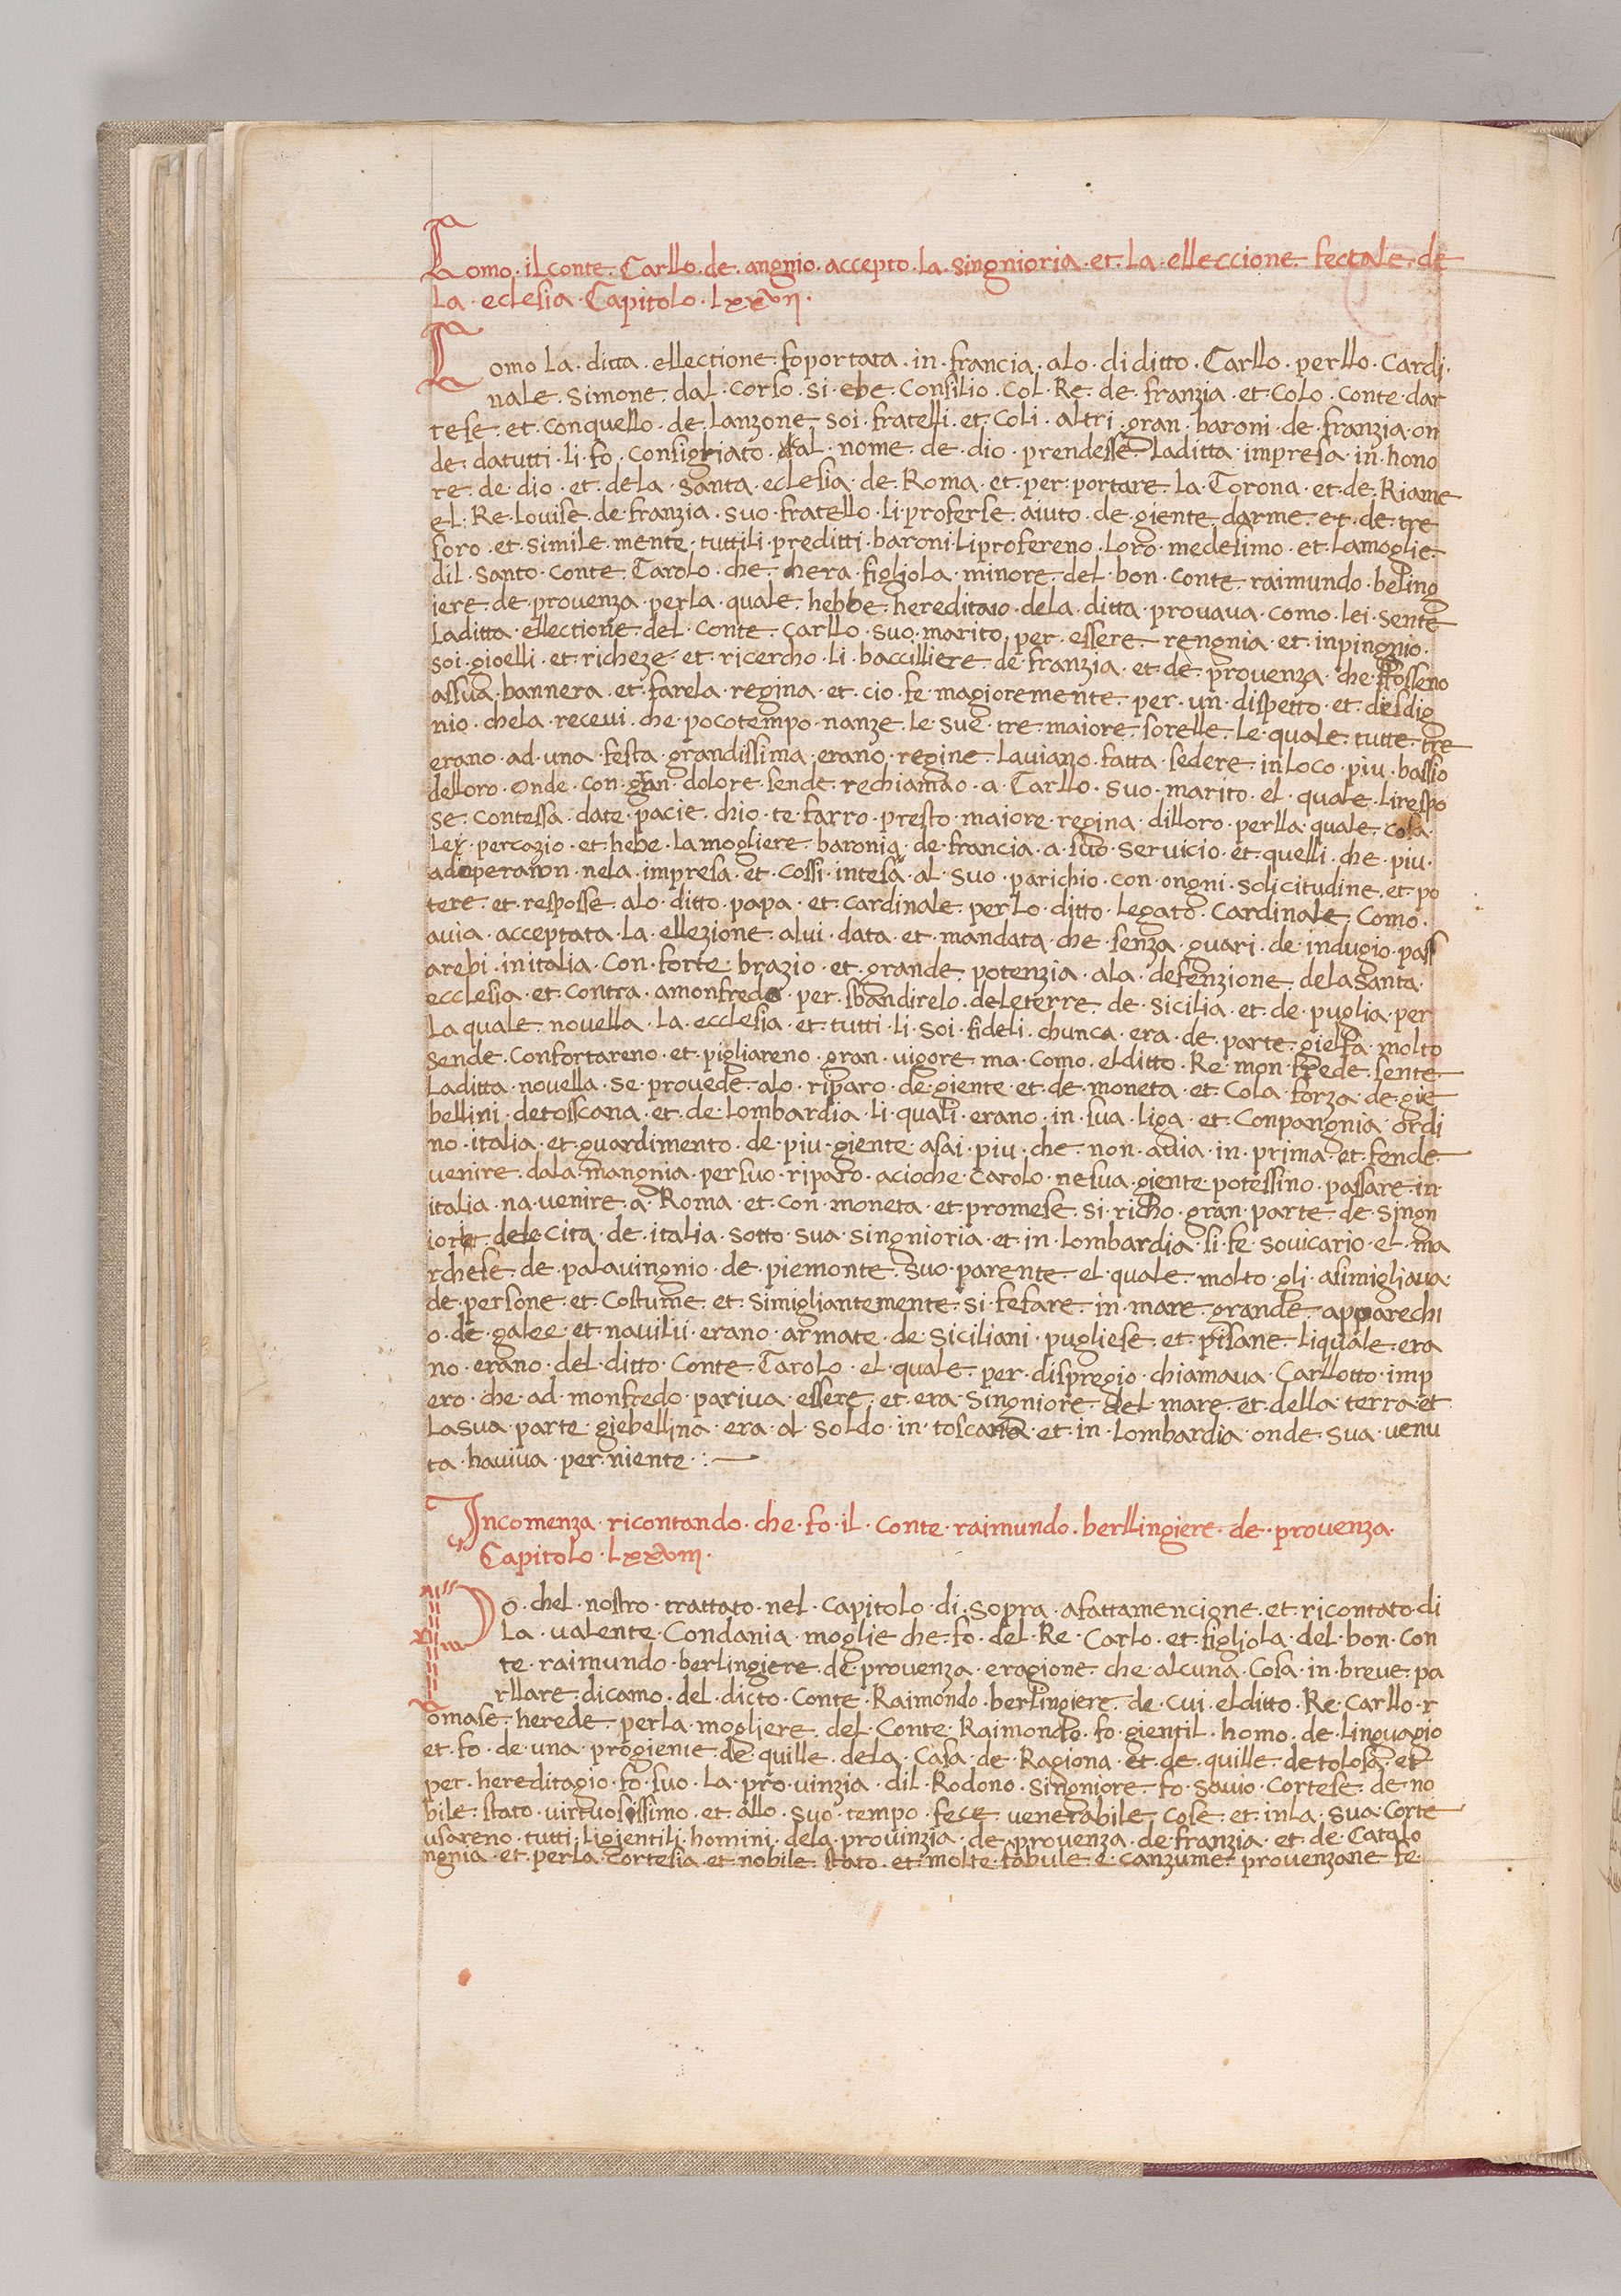 Como · il conte · Carllo · de · angnio · accepto · la · singnioria · et · la · elleccione · fectale · de
la · eclesia · Capitolo · lxxvii ·
Como la · ditta · ellectione · fo portata · in · francia · alo · di ditto · Carllo · perllo · Cardi
nale · simone · dal · corso · si · ebe · Consilio · Col · Re · de · franzia · et · Colo · Conte · dar
tese · et · con quello · de · lanzone · soi · fratelli · et · Coli · altri · gran · baroni · de · franzia · on
de · da tutti · li · fo · consigliato · dal · nome · de · dio · prendesse · la ditta · impresa · in · hono
re · de · dio · et · dela · santa · eclesia · de · Roma · et · per · portare · la · Corona · et · de · Riame
el · Re · Louise · de · franzia · suo · fratello · li · proferse · aiuto · de · giente · darme · et · de · tre
soro · et · simile · mente · tutti li · preditti · baroni · li profereno · loro · medesimo · et · la moglie
dil · santo · conte · Carolo · che · hera · figliola · minore · del · bon · conte · raimundo · beling
iere · de · provenza · per la · quale · hebbe · hereditaio · dela · ditta · provava · como · lei · sente
la ditta · ellectione · del · conte · carllo · suo · marito · per · essere · rengnia · et · inpingnio ·
soi · gioelli · et · richeze · et · ricercho · li · baccilliere · de · franzia · et · de · provenza · che · fosseno
assua · bannera · et · farela · regina · et · cio · fe · magioremente · per · un · dispetto · et · disdig
nio · chela · recevi · che · poco tempo · nanze · le · sue · tre · maiore · sorelle · le · quale · tutte · tre
erano · ad · una · festa · grandissima · erano · regine · laviano · fatta · sedere · in loco · piu · bassio
delloro · onde · con · gran · dolore · sende · rechiamao · a · Carllo · suo · marito · el · quale · li respo
se · contessa · date · pacie · chio · te · farro · presto · maiore · regina · dilloro · perlla · quale · cosa
lei · percazio · et · hebe · la mogliere · baronia · de · francia · a · suo · servicio · et · quelli · che · piu ·
adoperaron · nela · impresa · et · cossi · intesa · al · suo · parichio · con · ongni · solicitudine · et · po
tere · et · resposse · alo · ditto · papa · et · cardinale · per lo · ditto · legato · Cardinale · Como ·
avia · acceptata · la · ellezione · alui · data · et · mandata · che · senza · guari · de · indugio · pass
arebi · in italia · con · forte · brazio · et · grande · potenzia · ala · defenzione · dela santa ·
ecclesia · et · contra · a monfredo · per · sbandirelo · dele terre · de · sicilia · et · de · puglia · per
la quale · novella · la · ecclesia · et · tutti · li · soi · fideli · chunca · era · de · parte · gielfa · molto
sende · confortareno · et · pigliareno · gran · vigore · ma · como · el ditto · Re · mon frede · sente
la ditta · novella · se · provede · alo · riparo · de · giente · et · de · moneta · et · Cola · forza · de · gie
bellini · de tosscana · et · de · lombardia · li · quali · erano · in · sua · liga · et · Conpangnia · ordi
no · italia · et · guardimento · de · piu · giente · asai · piu · che · non · avia · in · prima · et · fende
venire · dala mangnia · per suo · riparo · acioche · carolo · ne sua · giente · potessino · passare · in
italia · na · venire · a · Roma · et · con · moneta · et · promese · si · richo · gran · parte · de · singn
iore · dele cita · de · italia · sotto · sua · singnioria · et · in · lombardia · si · fe · so vicario · el · ma
rchese · de · palavingnio · de · piemonte · suo · parente · el · quale · molto · gli · asimigliava ·
de · persone · et · costume · et · simigliantemente · si · fe fare · in · mare · grande · apparechi
o · de · galee · et · navilii · erano · armate · de · siciliani · pugliese · et · pisane · li quale · era
no · erano · del · ditto · Conte · Carolo · el · quale · per · dispregio · chiamava · Carllotto · imp
ero · che · ad · monfredo · pariva · essere · et · era · singniore · del · mare · et · della · terra · et
la sua · parte · giebellina · era · al · soldo · in · toscana · et · in · lombardia · onde · sua · venu
ta · haviva · per · niente · : —
Incomenza · ricontando · che · fo · il · conte · raimundo · berllingiere · de · provenza ·
Capitolo · lxxviii ·
Po · chel · nostro · trattato · nel · capitolo · di · sopra · a fatta mencione · et · ricontato · di
la · valente · Condania · moglie che · fo · del · Re · Carlo · et · figliola · del · bon · con
te · raimundo · berlingiere · de · provenza · e ragione · che · alcuna · Cosa · in · breve · pa
rllare · dicamo · del · dicto · Conte · Raimondo · berlingiere · de · cui · el ditto · Re · Carllo · r
omase · herede · per la · mogliere · del · Conte · Raimondo · fo · gientil · homo · de · lingvagio
et · fo · de · una · progienie · de · quille · dela · Casa · de · Ragiona · et · de · quille · de tolosa · et
per · hereditagio · fo · suo · la · pro vinzia · dil · Rodono · singniore · fo · savio · cortese · de no
bile · stato · virtuosissimo · et · allo · suo · tempo · fece · venerabile · cose · et · in la · sua · corte
usareno · tutti · li gientili · homini · dela · provinzia · de · provenza · de · franzia · et · de · Catalo
ngnia · et · per la · cortesia · et · nobile · stato · et · molte · fabule · e · canzume · provenzane · fe